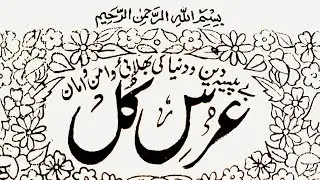 بسم اللہ الرحمن الرحیم
بے پلیسیدین و دنیا کی بھلائی و امن و امان
عرس کل